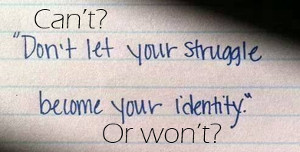 Can't?
"Don't let your struggle
become your identity."
Or won't?